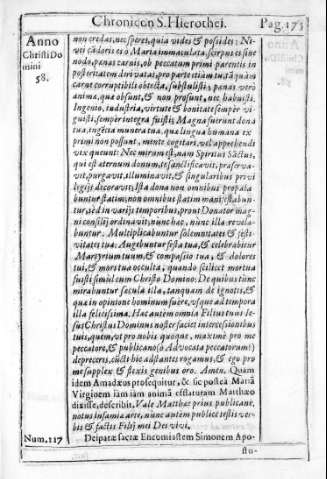 Chronicon S. Hierothei. Pag. 175
Anno
Christi Do
mini
58.
non credas, nec speres, quia vides & possides: Ni-
nodo, pœnas caruis, ob peccatum primi parentis in
posteritatem derivatas, pro parte etiam tu, tã quàm
carnē corruptibili obtecta, substulistis; pœnas verò
anima, qua obsunt, & non prosunt, nec habuisti.
Ingenio, industria, virtute & bonitate semper vi-
guisti, semper integra fuistis, Magna fuerunt dona
tua, ingētia munera tua, quæ lingua humana ex
primi non possunt, mente cogitari, vel apprehendi
vix queunt: Nec mirum est, nam Spiritus Sãctus,
qui est æternum donum, te sanctificavit, præserva-
vit, purgavit, illuminavit, & singularibus privi
legijs decoravit: Ista dona non omnibus propala
buntur statim; non omnibus statim manifestabun-
tur, sed in varijs temporibus, prout Donator mag-
ni consilij ordinavit, nunc hæc, nũc illa revela-
buntur. Multiplicabuntur solemnitates & festi-
vitates tuæ: Augebuntur festa tua, & celebrabitur
Martyrium tuum, & compassio tua, & dolores
tui, & mors tua occulta, quando scilicet mortua
fuisti simul cum Christo Domino: De quibus tūnc
mirabuntur sæcula illa, tanquam de ignotis, &
quæ in opinione hominum fuère, vsque ad tempora
illa felicissima. Hac autem omnia Filius tuus Ie-
sus Christus Dominus noster faciet intercessionibus
tuis, quem, vt pro nobis quoque, maximè pro me
peccatore, & publicano (ò Advocata peccatorum!)
depreceris, cũcti hic adstantes rogamus, & ego pro
me supplex & flexis genibus oro. Amen. Quam
idem Amadæus prosequitur, & sic postea Mariã
Virginem iam iam animã efflaturam Matthæo
dixisse, describit. Vale Matthæe prius publicane,
notus infamia arte, nunc autem publicè testis ver-
bis & factis Filij mei Dei vivi.
Num. 117
Deiparæ factæ Encomiastem Simonem Apo-
sto-